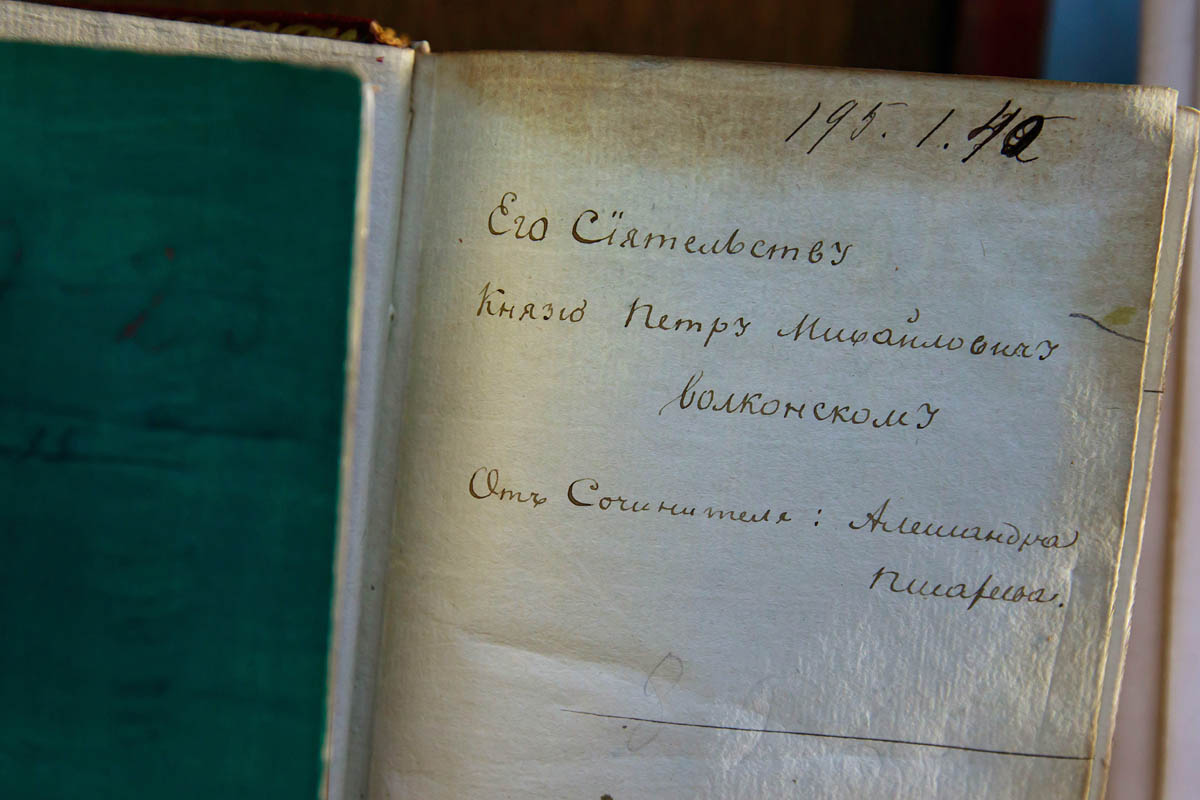 195. 1. 42
Его Сіятельству
Князю Петру Михайловичу
Волконскому
Отъ Сочинителя: Александра
Писарева.